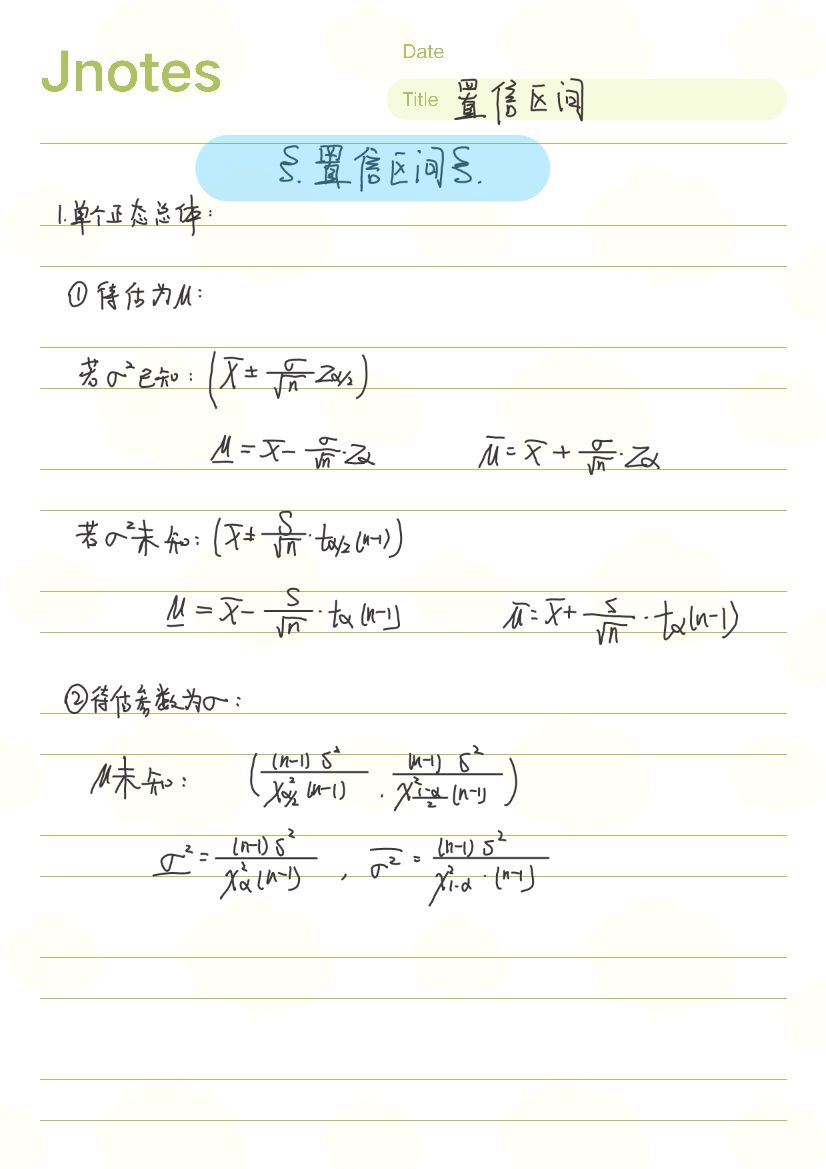 Jnotes
Date
Title 置信区间
§. 置信区间 §.
1. 单个正态总体:
① 待估为μ:
若σ²已知: (X̄ ± σ/√n Z_{α/2})
μ̲ = X̄ - σ/√n · Z_α    μ̄ = X̄ + σ/√n · Z_α
若σ²未知: (X̄ ± S/√n · t_{α/2}(n-1))
μ̲ = X̄ - S/√n · t_α(n-1)    μ̄ = X̄ + S/√n · t_α(n-1)
② 待估参数为σ:
μ未知: ((n-1)S²/χ²_{α/2}(n-1) , (n-1)S²/χ²_{(1-α)/2}(n-1))
σ̲² = (n-1)S²/χ²_α(n-1) , σ̄² = (n-1)S²/χ²_{1-α}·(n-1)